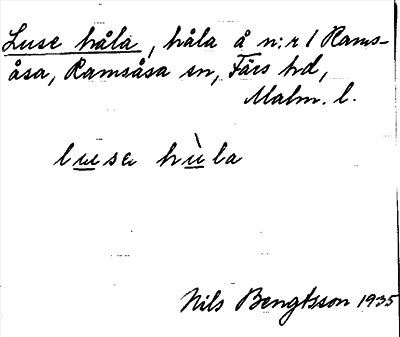 Luse håla, håla å n:r 1 Rams-
åsa, Ramsåsa sn, Färs hd,
Malm. l.
lusa hùla
Nils Bengtsson 1935